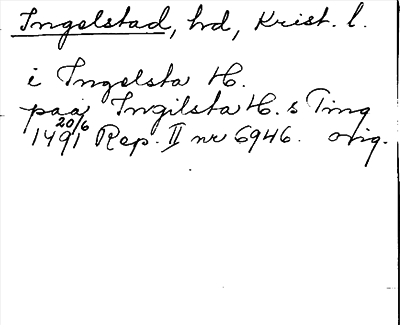 Ingelstad, hd, Krist. l.
i Ingelsta H.
paa Ingilsta H. s Ting
20/6
1491 Rep. II nr 6946. orig.